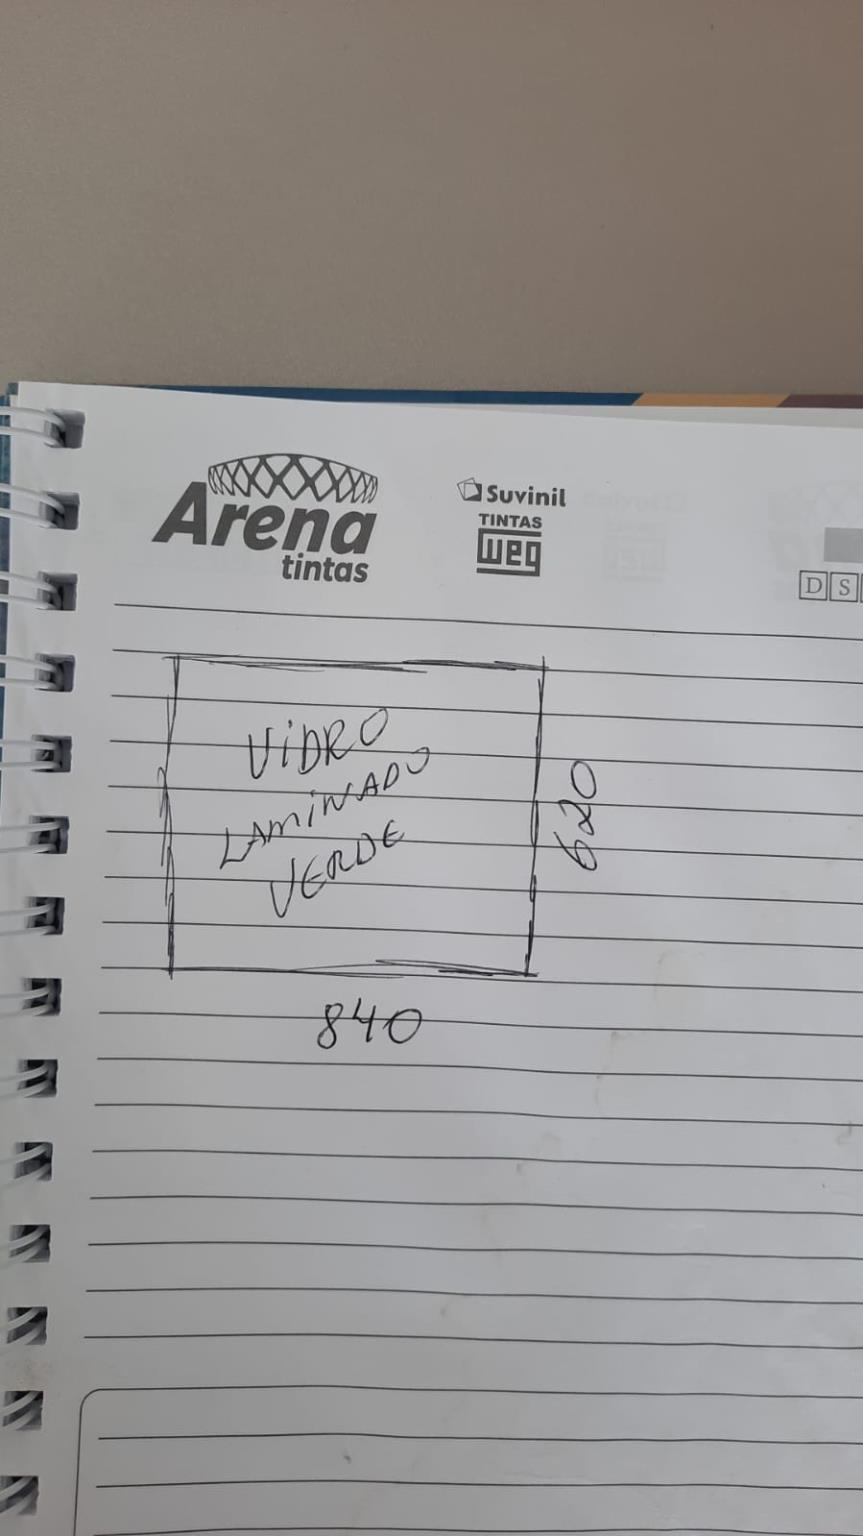 Arena
tintas
Suvinil
TINTAS
weg
D S
VIDRO
LAMINADO
VERDE
620
840